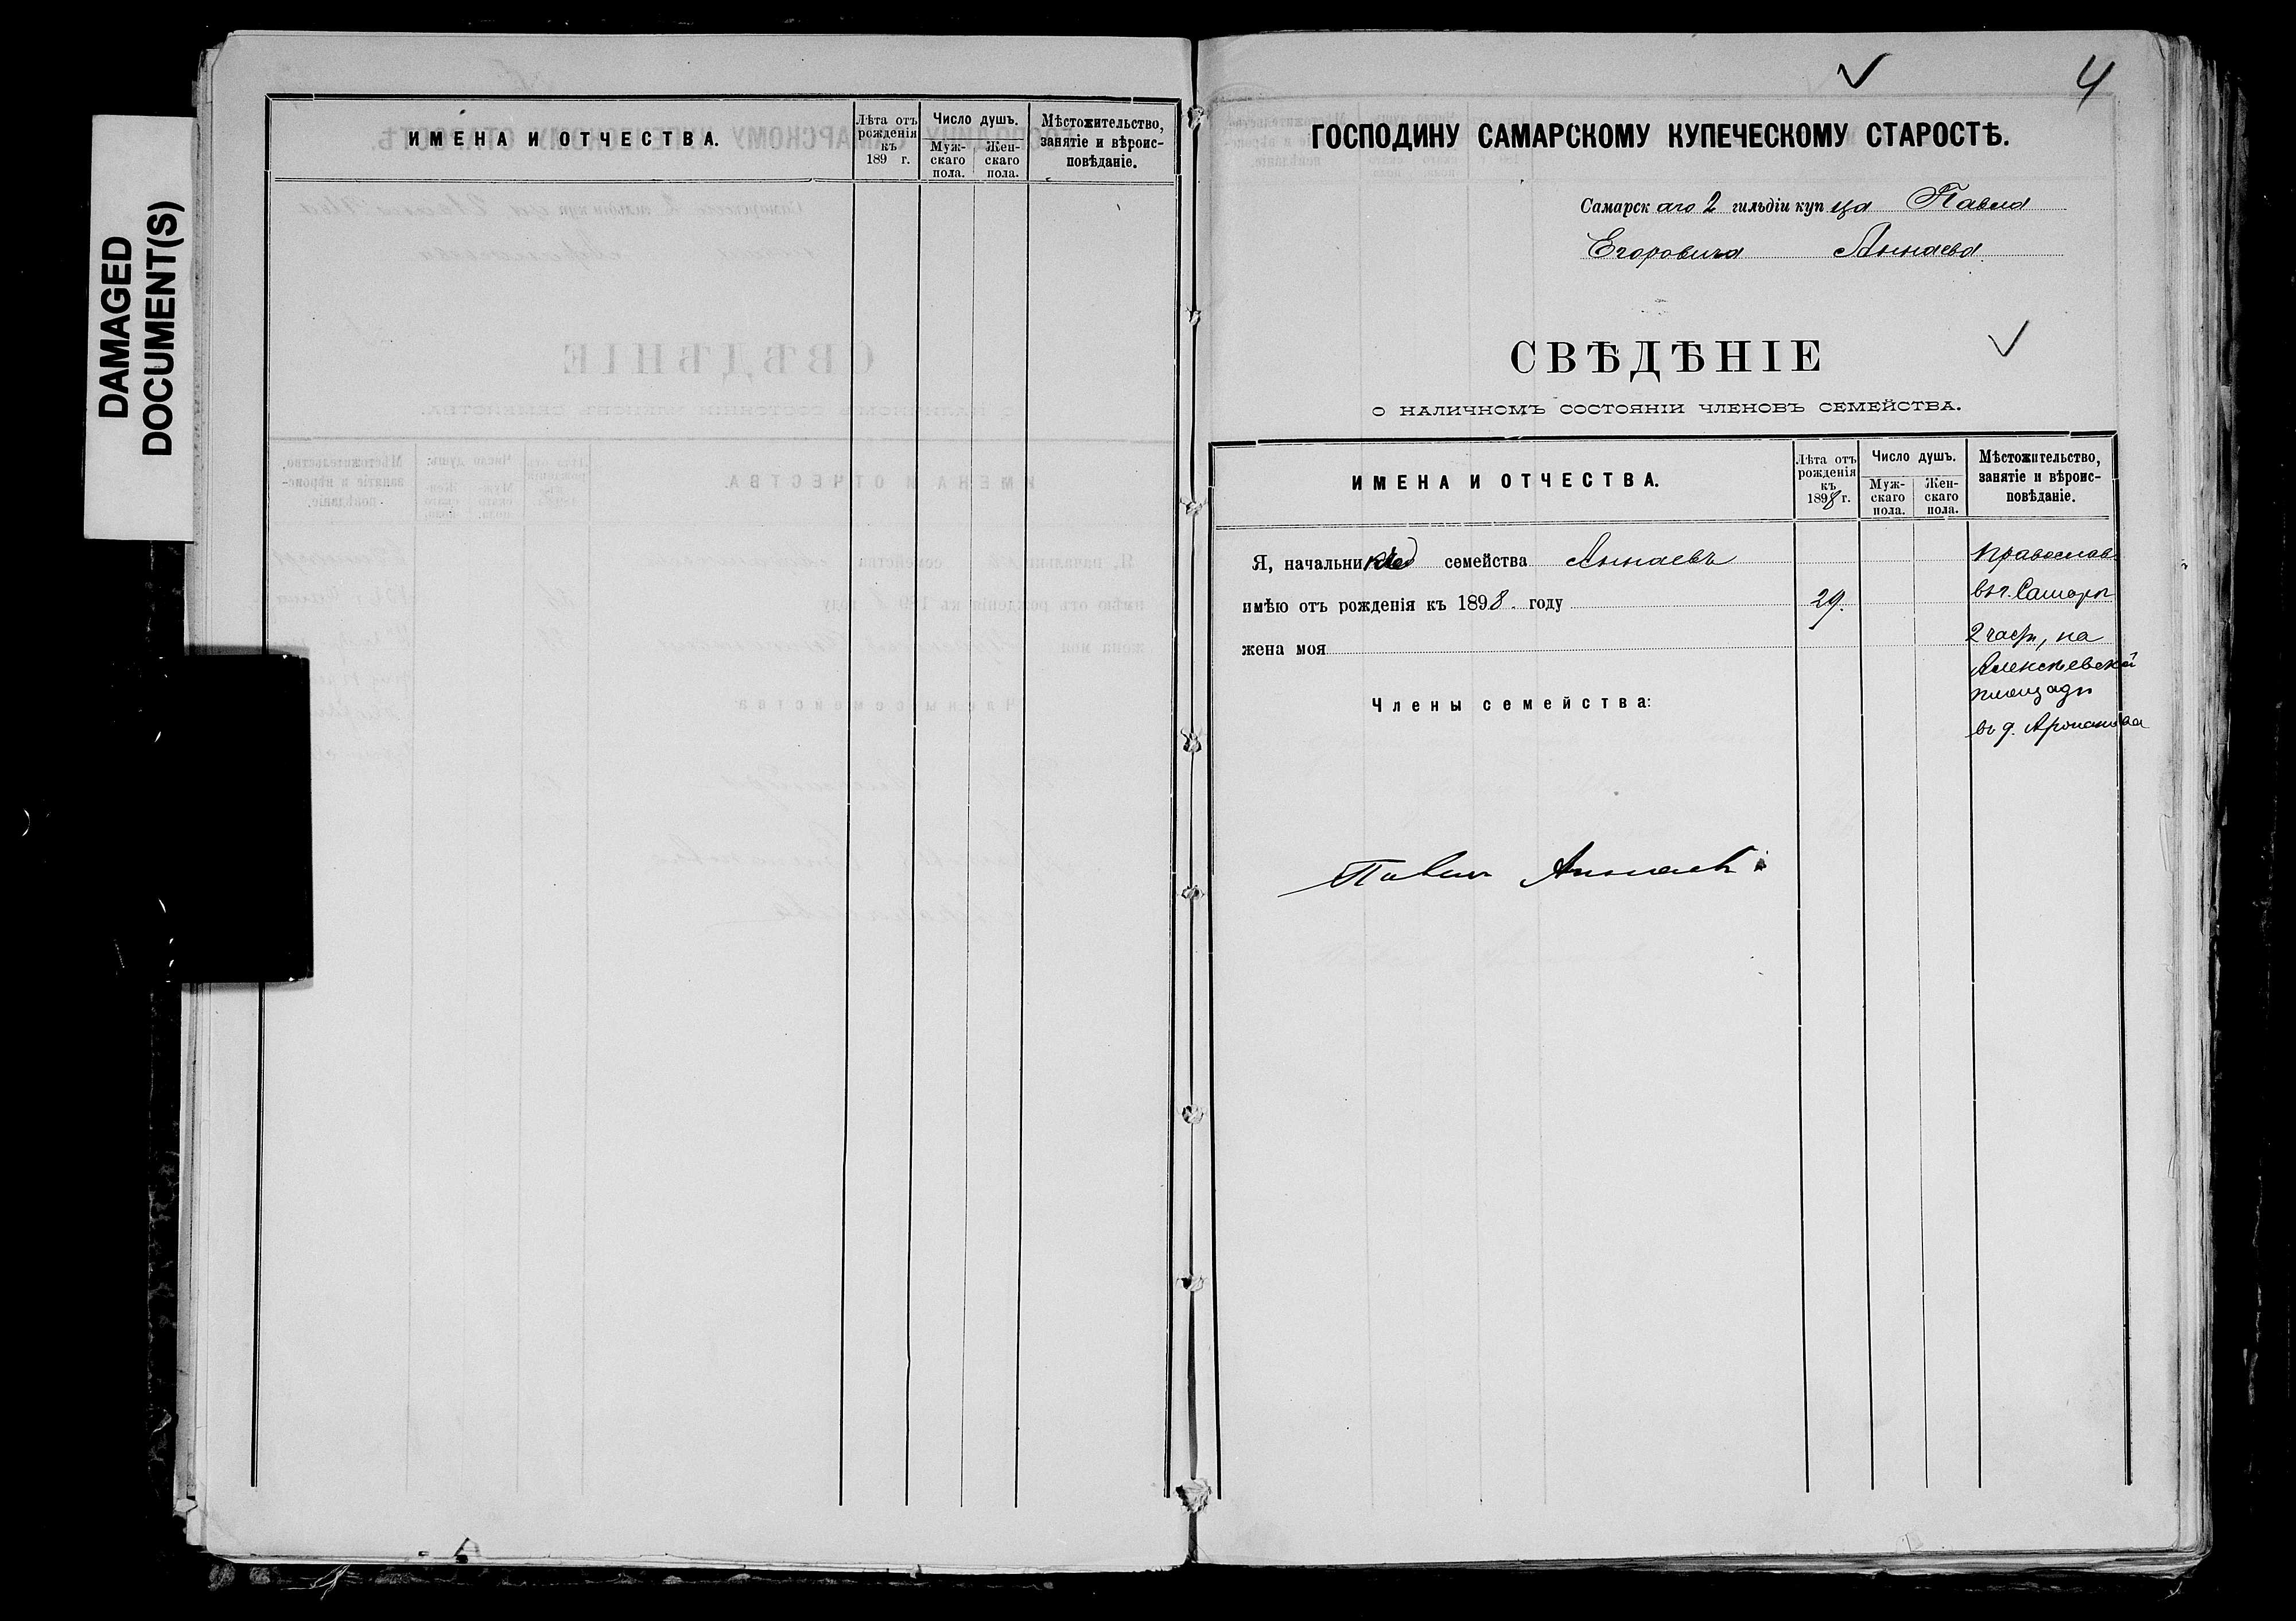 DAMAGED
DOCUMENT(S)
ИМЕНА И ОТЧЕСТВА.
Лѣта отъ рожденія къ 189 г.
Число душъ.
Мужскаго пола.
Женскаго пола.
Мѣстожительство, занятіе и вѣроисповѣданіе.
4
ГОСПОДИНУ САМАРСКОМУ КУПЕЧЕСКОМУ СТАРОСТѢ.
Самарскаго 2 гильдіи купца Павла
Егоровича Аннаева
СВѢДѢНІЕ
О НАЛИЧНОМЪ СОСТОЯНІИ ЧЛЕНОВЪ СЕМЕЙСТВА.
ИМЕНА И ОТЧЕСТВА.
Лѣта отъ рожденія къ 1898 г.
Число душъ.
Мужскаго пола.
Женскаго пола.
Мѣстожительство, занятіе и вѣроисповѣданіе.
Я, начальникъ семейства Аннаевъ
имѣю отъ рожденія къ 1898. году 29.
жена моя
Члены семейства:
православ.
въ г. Самарѣ
2 части, на
Алексѣевской
площади
въ д.
Павелъ Аннаевъ